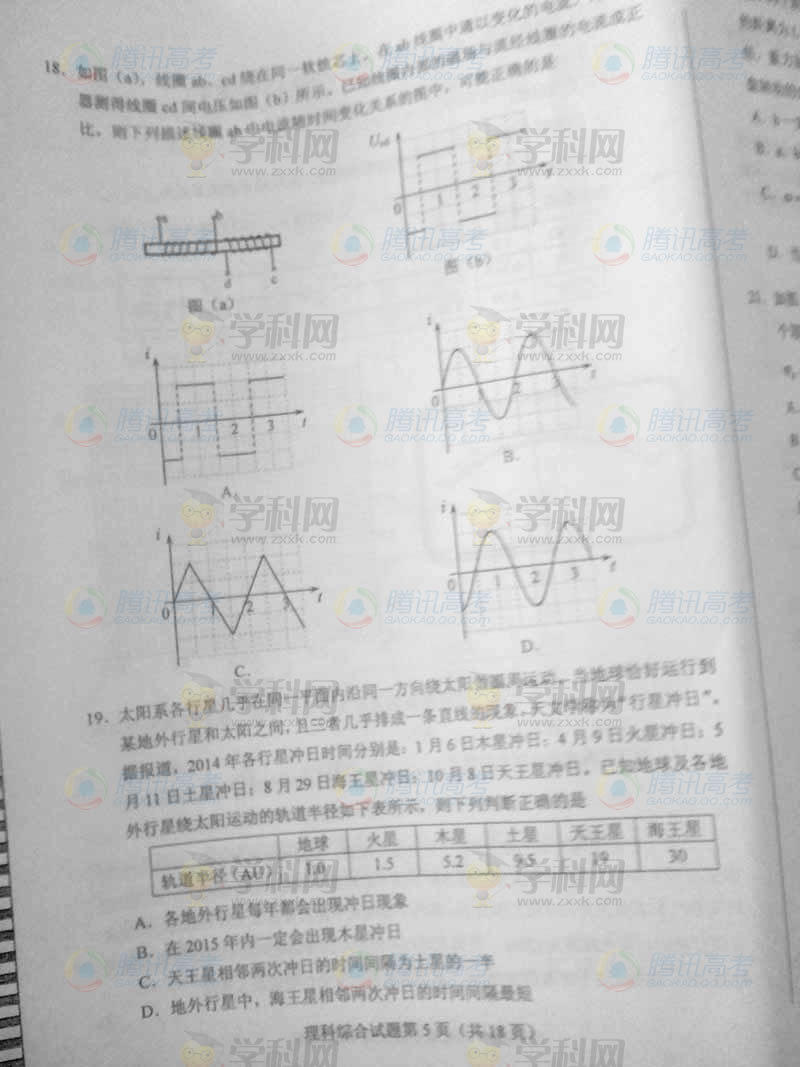 18. 如图(a),线圈ab、cd绕在同一软铁芯上,在ab线圈中通以变化的电流,
器测得线圈cd间电压如图(b)所示。已知线圈内部的磁场与流经线圈的电流成正
比,则下列描述线圈ab中电流随时间变化关系的图中,可能正确的是
Ucd
0 1 2 3 t
图(b)
a b
d c
图(a)
i
0 1 2 3 t
A.
i
0 2 3 t
B.
i
0 1 2 3 t
C.
i
0 1 2 3 t
D.
19. 太阳系各行星几乎在同一平面内沿同一方向绕太阳做圆周运动。当地球恰好运行到
某地外行星和太阳之间,且三者几乎排成一条直线的现象,天文学称为“行星冲日”。
据报道,2014年各行星冲日时间分别是:1月6日木星冲日;4月9日火星冲日;5
月11日土星冲日;8月29日海王星冲日;10月8日天王星冲日。已知地球及各地
外行星绕太阳运动的轨道半径如下表所示,则下列判断正确的是
地球 火星 木星 土星 天王星 海王星
轨道半径(AU) 1.0 1.5 5.2 9.5 19 30
A. 各地外行星每年都会出现冲日现象
B. 在2015年内一定会出现木星冲日
C. 天王星相邻两次冲日的时间间隔为土星的一半
D. 地外行星中,海王星相邻两次冲日的时间间隔最短
理科综合试题第5页(共18页)
21. 如图
个等
A.
B.
C.
D.
学科网
www.zxxk.com
腾讯高考
GAOKAO.QQ.COM